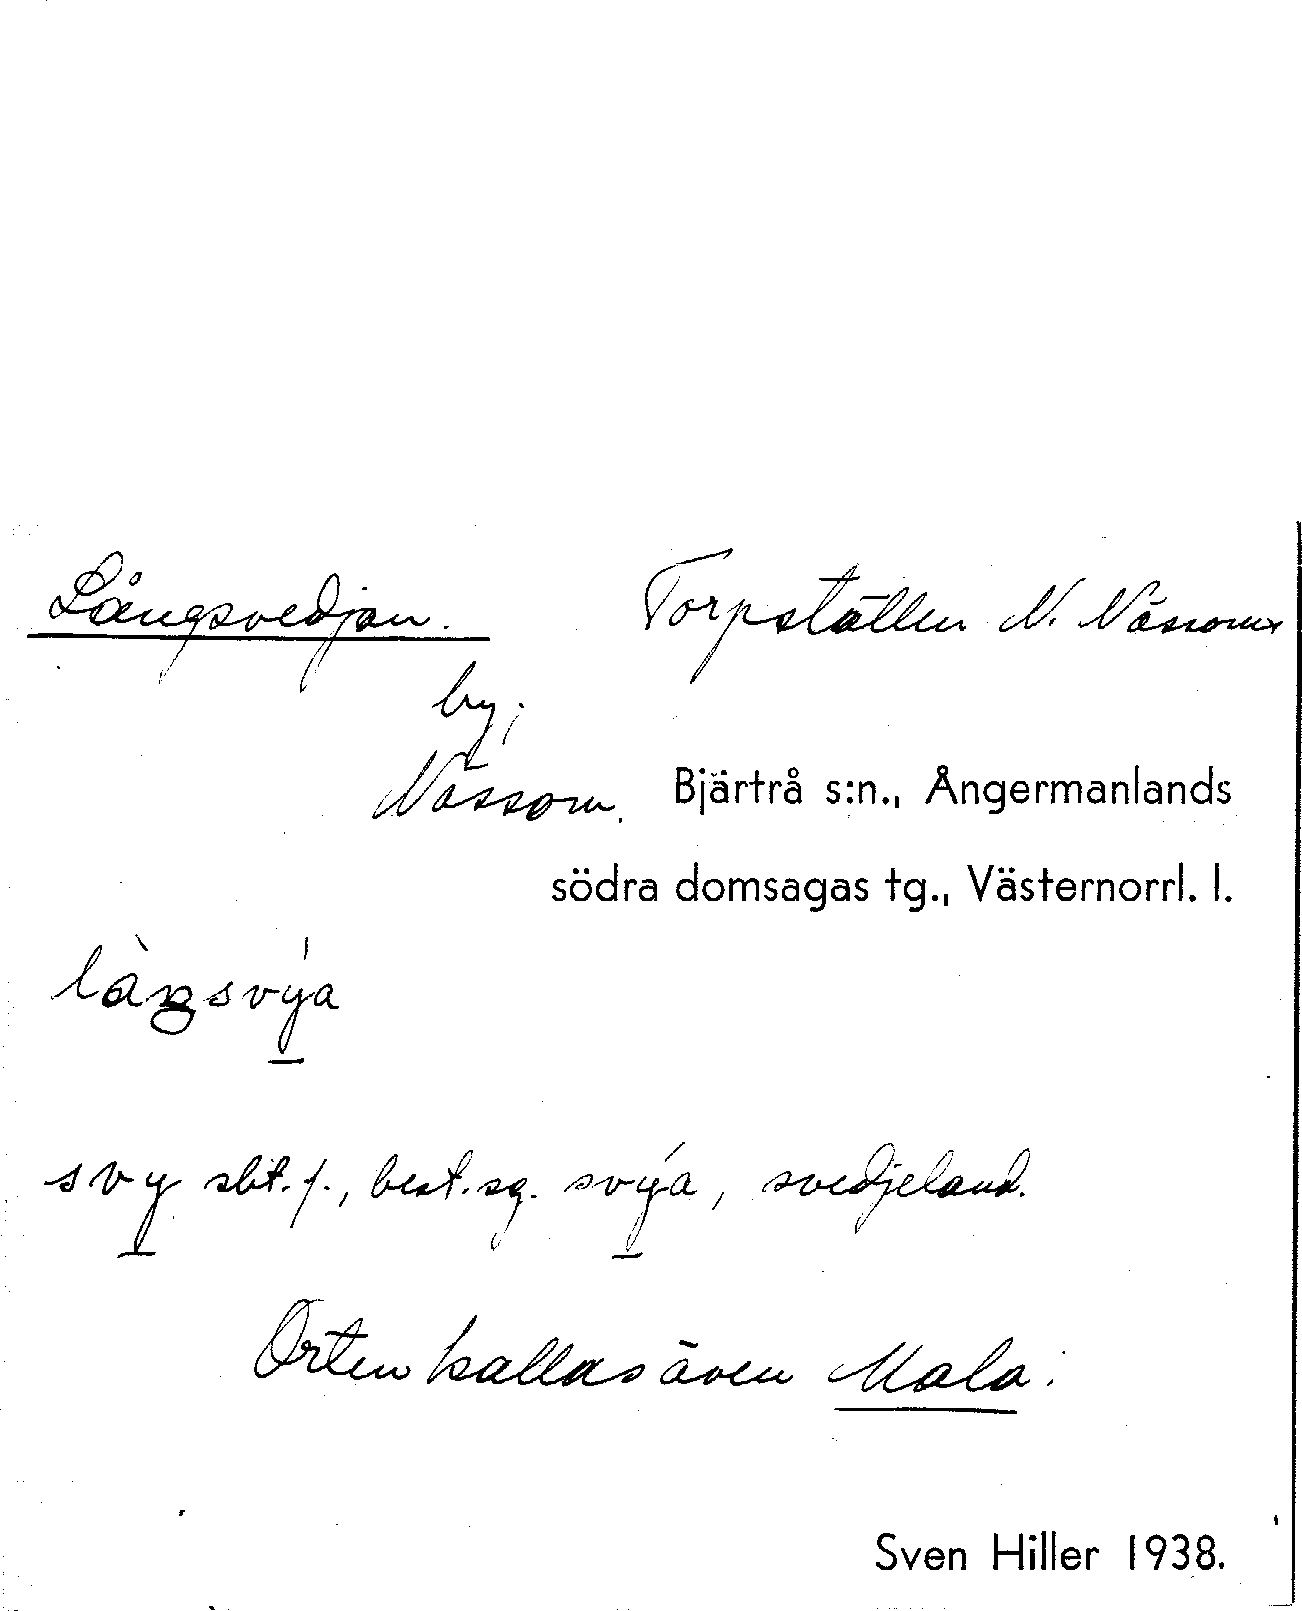 Långsvedjan. Torpställen N. Nässoms
by;
Nässom. Bjärtrå s:n., Ångermanlands
södra domsagas tg., Västernorrl. l.
làŋsvýa
svy sbt. f., best. sg. svýa, svedjeland.
Orten kallas även Mala.
Sven Hiller 1938.